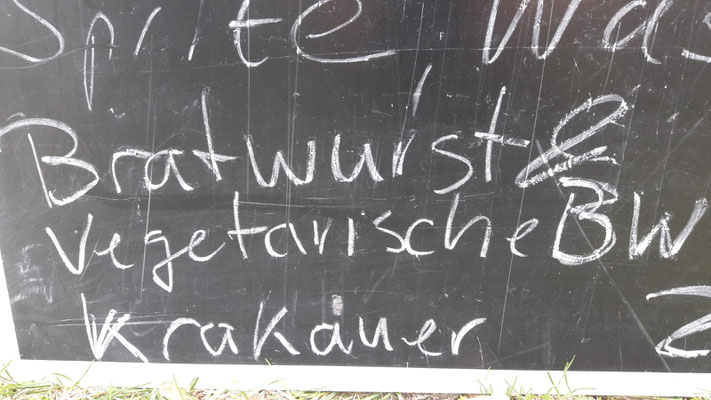 Sprite, Was
Bratwurst &
vegetarische BW
Krakauer 2